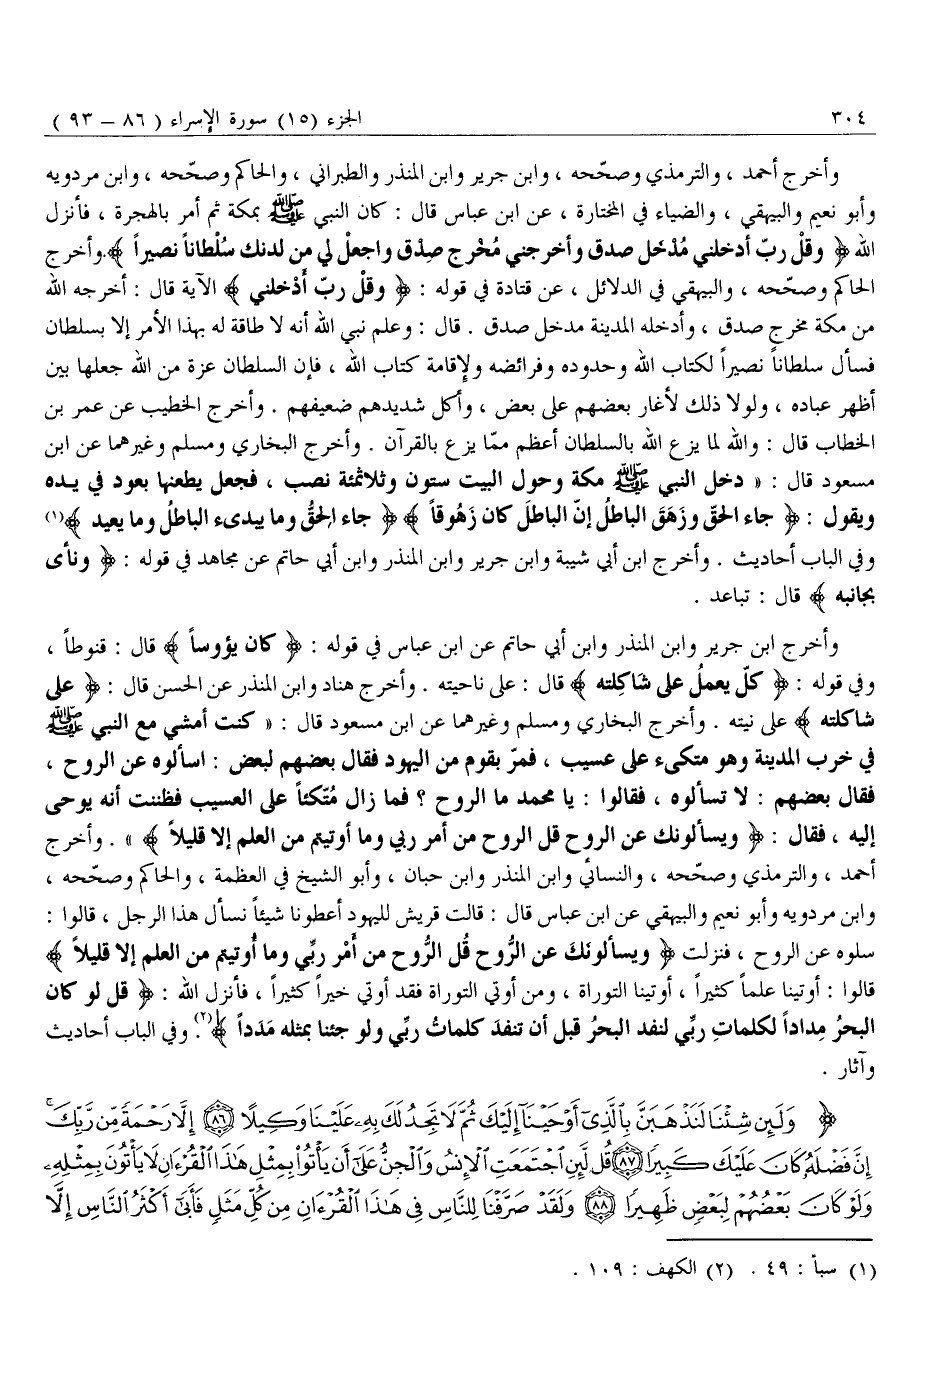 ٣٠٤ الجزء (١٥) سورة الإسراء ( ٨٦ – ٩٣ )
وأخرج أحمد ، والترمذي وصحّحه ، وابن جرير وابن المنذر والطبراني ، والحاكم وصحّحه ، وابن مردويه
وأبو نعيم والبيهقي ، والضياء في المختارة ، عن ابن عباس قال : كان النبي ﷺ بمكة ثم أمر بالهجرة ، فأنزل
الله ﴿ وقلْ ربّ أدخلني مُدْخَل صدق وأخرجني مُخْرج صِدْق واجعلْ لي من لدنك سُلْطاناً نصيراً ﴾. وأخرج
الحاكم وصحّحه ، والبيهقي في الدلائل ، عن قتادة في قوله : ﴿ وقلْ ربّ أَدْخلني ﴾ الآية قال : أخرجه الله
من مكة مخرج صدق ، وأدخله المدينة مدخل صدق . قال : وعلم نبي الله أنه لا طاقة له بهذا الأمر إلا بسلطان
فسأل سلطاناً نصيراً لكتاب الله وحدوده وفرائضه ولإقامة كتاب الله ، فإن السلطان عزة من الله جعلها بين
أظهر عباده ، ولولا ذلك لأغار بعضهم على بعض ، وأكل شديدهم ضعيفهم . وأخرج الخطيب عن عمر بن
الخطاب قال : والله لما يزع الله بالسلطان أعظم ممّا يزع بالقرآن . وأخرج البخاري ومسلم وغيرهما عن ابن
مسعود قال : « دخل النبي ﷺ مكة وحول البيت ستون وثلاثمئة نصب ، فجعل يطعنها بعود في يـده
ويقول : ﴿ جاء الحقّ وزَهَقَ الباطلُ إنّ الباطلَ كان زَهُوقاً ﴾ ﴿ جاء الحقُّ وما يبدىء الباطلُ وما يعيد ﴾(١)
وفي الباب أحاديث . وأخرج ابن أبي شيبة وابن جرير وابن المنذر وابن أبي حاتم عن مجاهد في قوله : ﴿ ونأى
بجانبه ﴾ قال : تباعد .
وأخرج ابن جرير وابن المنذر وابن أبي حاتم عن ابن عباس في قوله : ﴿ كان يؤوساً ﴾ قال : قنوطاً ،
وفي قوله : ﴿ كلّ يعملُ على شَاكِلته ﴾ قال : على ناحيته . وأخرج هناد وابن المنذر عن الحسن قال : ﴿ على
شاكلته ﴾ على نيته . وأخرج البخاري ومسلم وغيرهما عن ابن مسعود قال : « كنت أمشي مع النبي ﷺ
في خرب المدينة وهو متكىء على عسيب ، فمرّ بقوم من اليهود فقال بعضهم لبعض : اسألوه عن الروح ،
فقال بعضهم : لا تسألوه ، فقالوا : يا محمد ما الروح ؟ فما زال مُتكئاً على العسيب فظننت أنه يوحى
إليه ، فقال : ﴿ ويسألونك عن الروح قل الروح من أمر ربي وما أوتيتم من العلم إلا قليلاً ﴾ » . وأخرج
أحمد ، والترمذي وصحّحه ، والنسائي وابن المنذر وابن حبان ، وأبو الشيخ في العظمة ، والحاكم وصحّحه ،
وابن مردويه وأبو نعيم والبيهقي عن ابن عباس قال : قالت قريش لليهود أعطونا شيئاً نسأل هذا الرجل ، قالوا :
سلوه عن الروح ، فنزلت ﴿ ويسألونَكَ عن الرُّوح قُل الرُّوح من أَمْر ربِّي وما أُوتيتم من العلم إلا قليلاً ﴾
قالوا : أوتينا علماً كثيراً ، أوتينا التوراة ، ومن أوتي التوراة فقد أوتي خيراً كثيراً ، فأنزل الله : ﴿ قل لو كان
البحرُ مِداداً لكلماتِ ربِّي لنفد البحرُ قبل أن تنفدَ كلماتُ ربِّي ولو جئنا بمثله مَدَداً ﴾(٢). وفي الباب أحاديث
وآثار .
﴿ وَلَئِن شِئْنَا لَنَذْهَبَنَّ بِٱلَّذِىٓ أَوْحَيْنَآ إِلَيْكَ ثُمَّ لَا تَجِدُ لَكَ بِهِۦ عَلَيْنَا وَكِيلًا ۝٨٦ إِلَّا رَحْمَةً مِّن رَّبِّكَ ۚ
إِنَّ فَضْلَهُۥ كَانَ عَلَيْكَ كَبِيرًا ۝٨٧ قُل لَّئِنِ ٱجْتَمَعَتِ ٱلْإِنسُ وَٱلْجِنُّ عَلَىٰٓ أَن يَأْتُوا۟ بِمِثْلِ هَٰذَا ٱلْقُرْءَانِ لَا يَأْتُونَ بِمِثْلِهِۦ
وَلَوْ كَانَ بَعْضُهُمْ لِبَعْضٍ ظَهِيرًا ۝٨٨ وَلَقَدْ صَرَّفْنَا لِلنَّاسِ فِى هَٰذَا ٱلْقُرْءَانِ مِن كُلِّ مَثَلٍ فَأَبَىٰٓ أَكْثَرُ ٱلنَّاسِ إِلَّا
(١) سبأ : ٤٩ . (٢) الكهف : ١٠٩ .